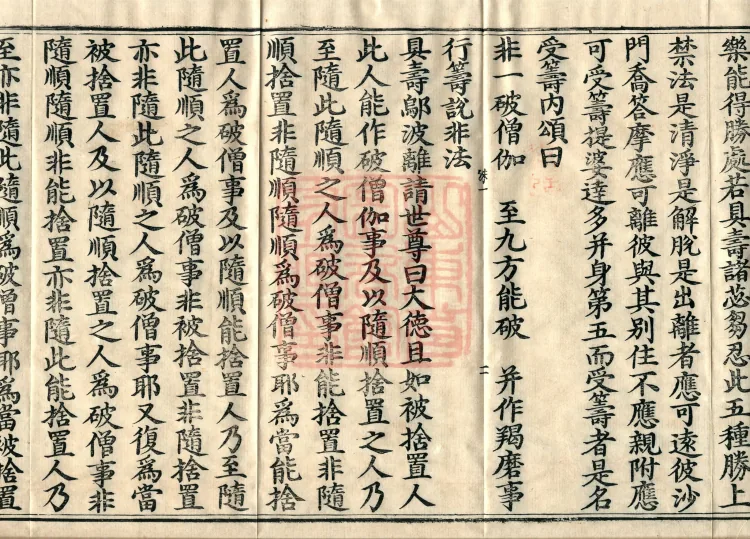 樂能得勝處若具壽諸苾芻忍此五種勝上
禁法是清淨是解脫是出離者應可遠彼沙
門喬答摩應可離彼與其別住不應親附應
可受籌提婆達多并身第五而受籌者是名
受籌內頌曰
非一破僧伽　至九方能破　并作羯磨事
行籌說非法
具壽鄔波離請世尊曰大德且如被捨置人
此人能作破僧伽事及以隨順捨置之人乃
至隨此隨順之人為破僧事非能捨置非隨
順捨置非隨順隨順為破僧事耶為當能捨
置人為破僧事及以隨順能捨置人乃至隨
此隨順之人為破僧事非被捨置非隨捨置
亦非隨此隨順之人為破僧事耶又復為當
被捨置人及以隨順捨置之人為破僧事非
隨順隨順非能捨置亦非隨此能捨置人乃
至亦非隨此隨順為破僧事耶為當被捨置